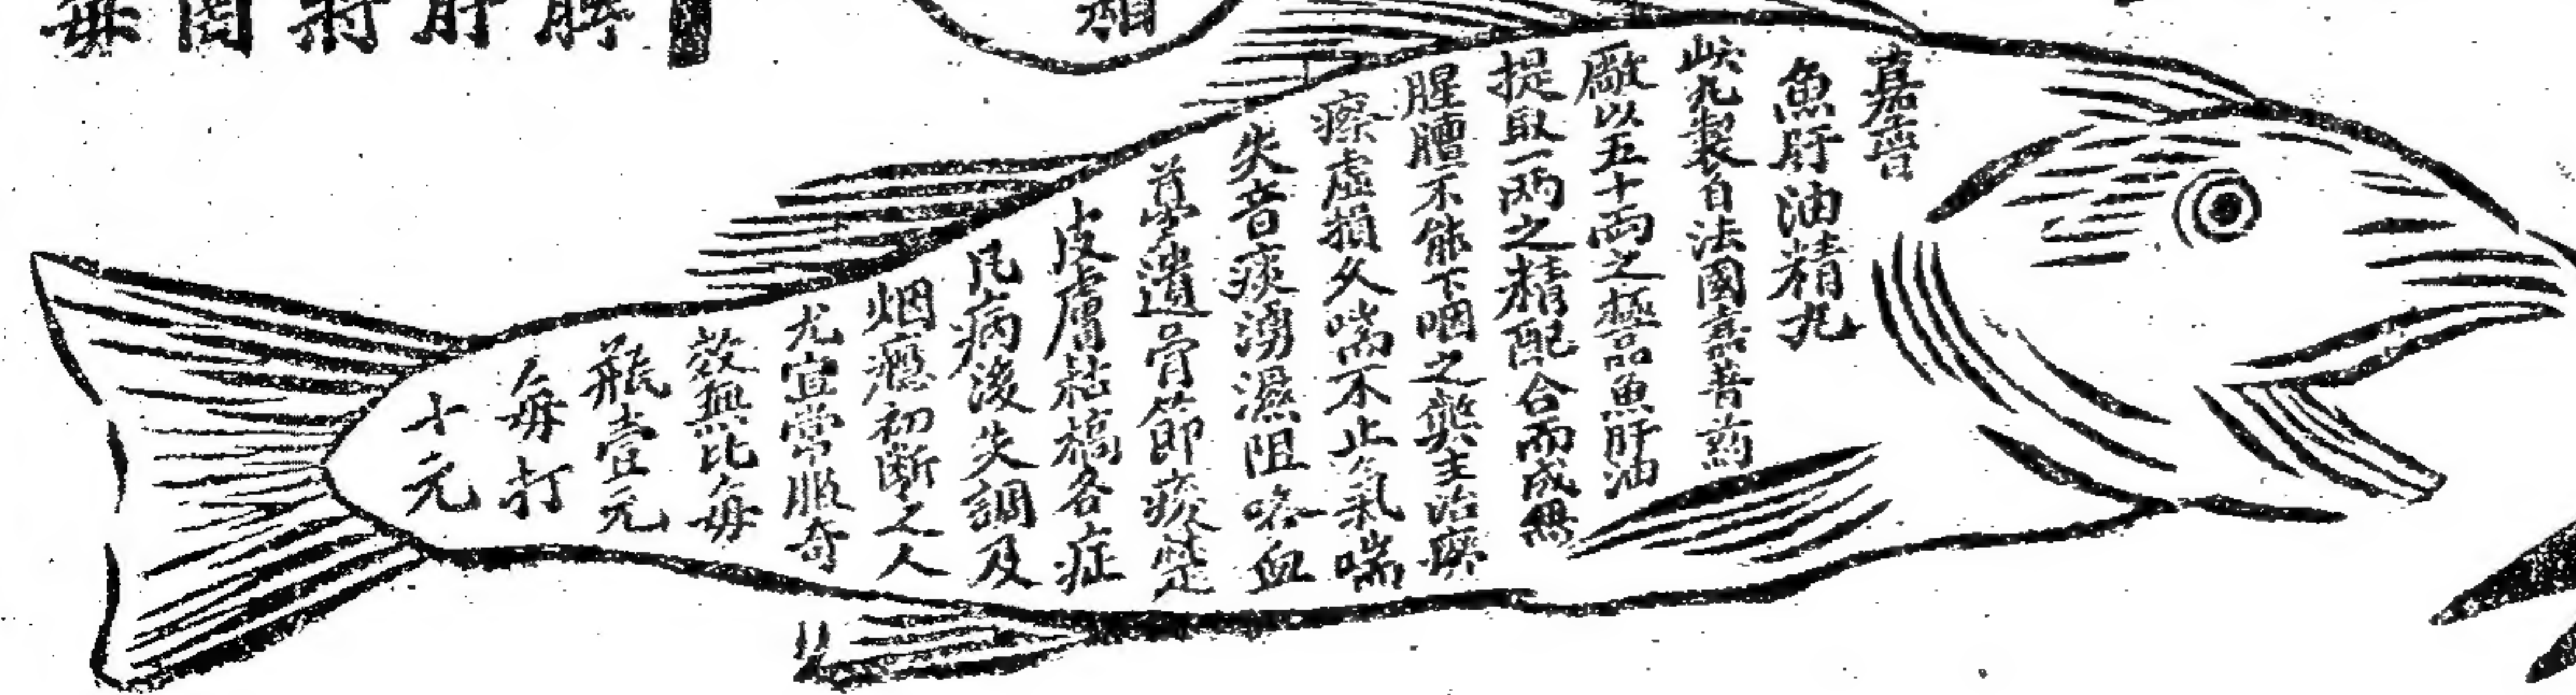 嘉普
魚肝油精丸
此丸製自法國嘉普葯
廠以五十兩之極品魚肝油
提取一兩之精配合而成無
腥膻不能下咽之弊主治癆
瘵虛損久喘不止氣喘
失音痰湧濕阻咯血
夢遺骨節痠楚
皮膚枯槁各症
凡病後失調及
烟癮初斷之人
尤宜常服奇
效無比每
瓶壹元
每打
十元